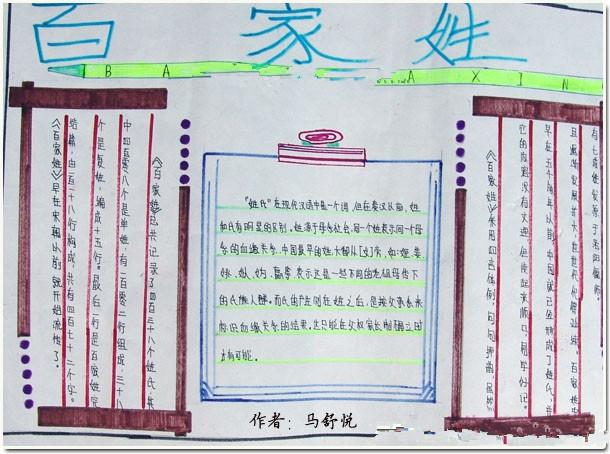 百家姓
B A A X I N
《百家姓》已共记录了四百三十八个姓氏,其
中四百零八个是单姓,有一百零二行组成,三十八
个是复姓,编成十五行。最后一行是百家姓完
结篇,由一百一十八行构成,共有四百七十二个字。
《百家姓》早在宋朝以前就开始流传了。
"姓氏"在现代汉语中是一个词,但在秦汉以前,姓
和氏有明显的区别。姓源于母系社会,同一个姓表示同一个母
系的血缘关系。中国最早的姓大都从[女]旁,如:姬、姜、
姒、姚、妫、嬴等,表示这是一些不同的老祖母传下
的氏族人群。而氏的产生则在姓之后,是按父系来
标识血缘关系的结果,这只能在父权家长制确立时
才有可能。
《百家姓》采用四言体例,句句押韵,虽然
它的内容没有文理,但读起来顺口,易学好记。
早在五千多年以前,中国就已经形成了姓氏,并
且逐渐发展扩大世世代代地延续。百家姓
作者：马舒悦